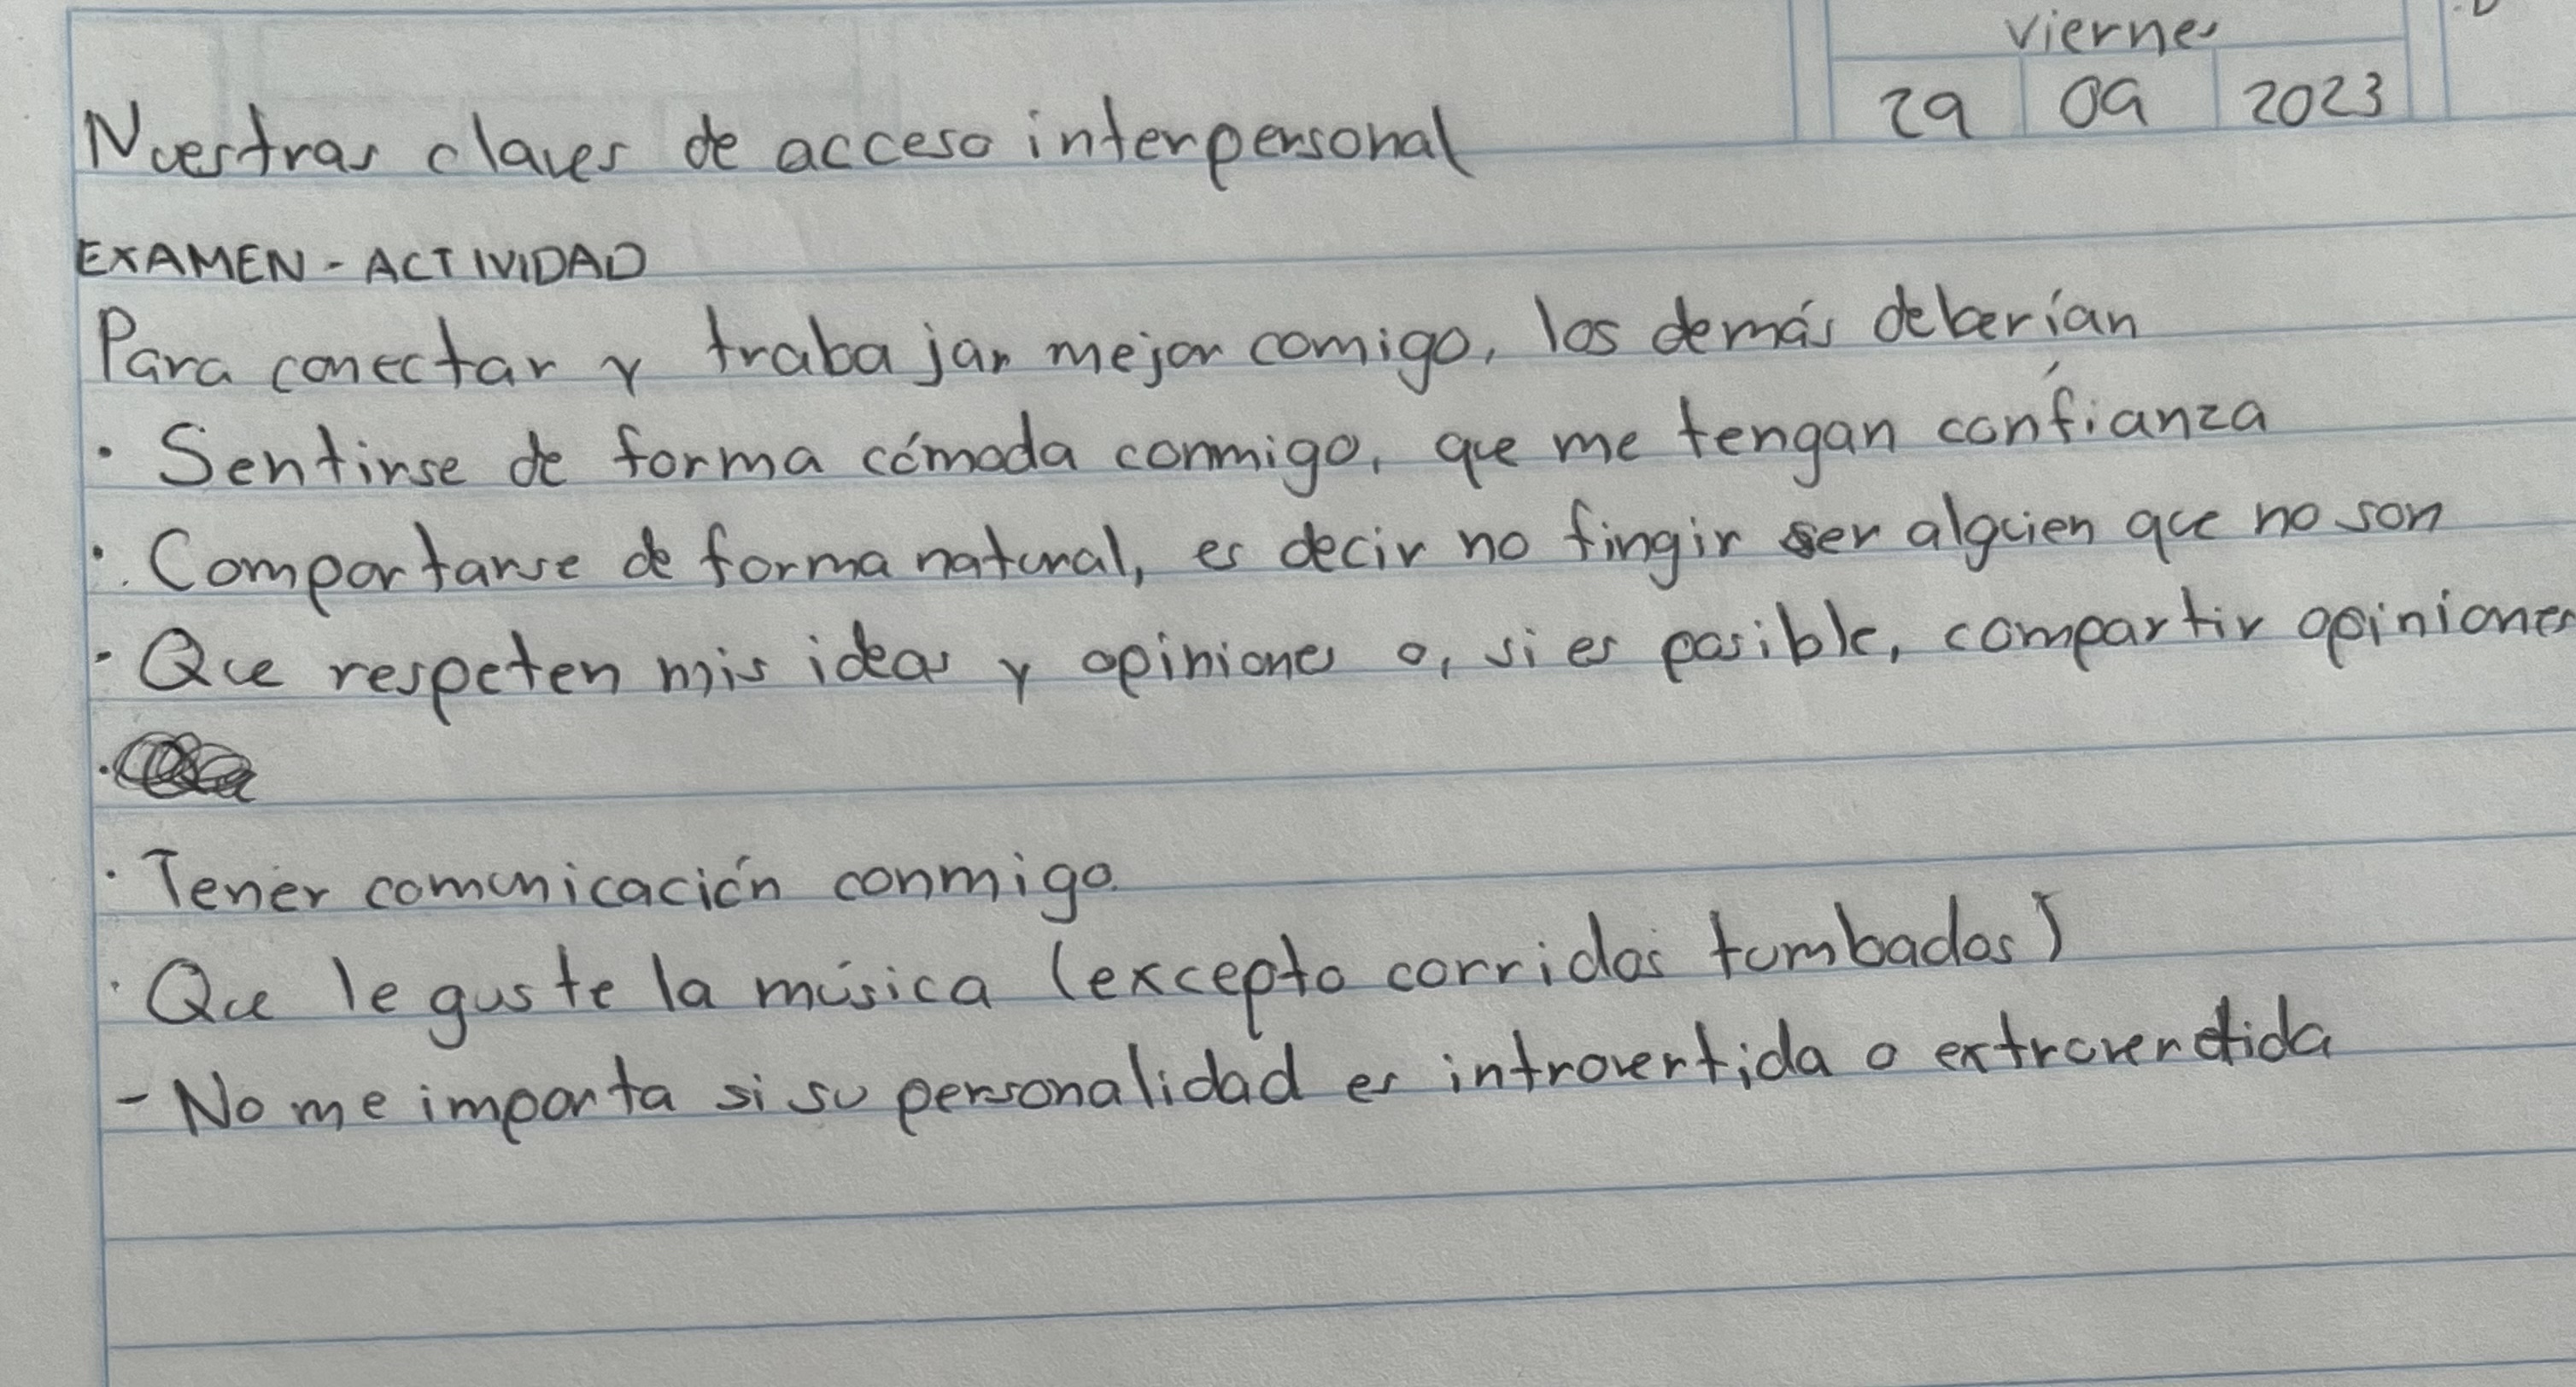 Viernes
29 09 2023
Nuestras claves de acceso interpersonal
EXAMEN - ACTIVIDAD
Para conectar y trabajar mejor comigo, los demás deberían
· Sentirse de forma cómoda conmigo, que me tengan confíanza
· Comportarse de forma natural, es decir no fingir ser alguien que no son
· Que respeten mis ideas y opiniones o, si es posible, compartir opiniones
·
· Tener comunicación conmigo
· Que le guste la música (excepto corridos tumbados)
- No me importa si su personalidad es introvertida o extrovertida